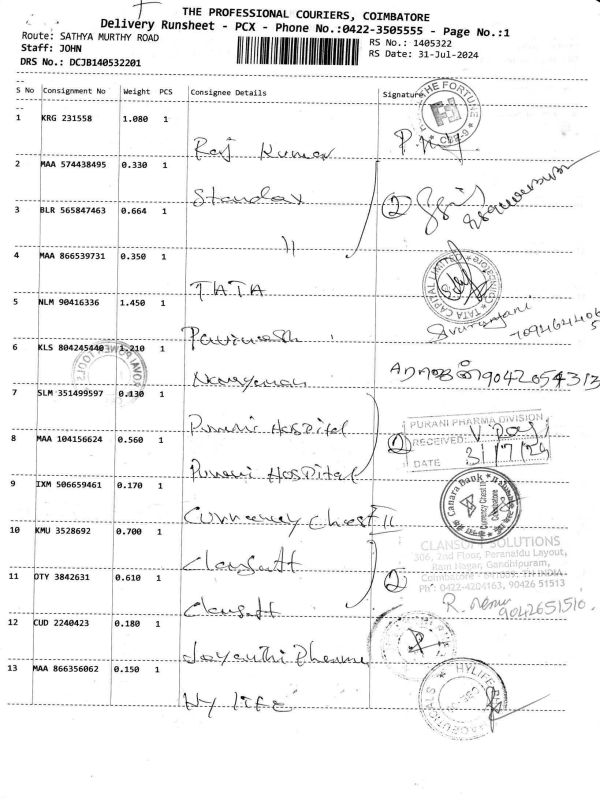 THE PROFESSIONAL COURIERS, COIMBATORE
Delivery Runsheet - PCX - Phone No.:0422-3505555 - Page No.:1
Route: SATHYA MURTHY ROAD
RS No.: 1405322
Staff: JOHN
RS Date: 31-Jul-2024
DRS No.: DCJB140532201
S No Consignment No Weight PCS Consignee Details Signature
1 KRG 231558 1.080 1 Raj Kumar
THE FORTUNE
CBE-9
2 MAA 574438495 0.330 1
2
3 BLR 565847463 0.664 1 11
4 MAA 866539731 0.350 1 TATA
TATA CAPITAL LIMITED
5 NLM 90416336 1.450 1
6 KLS 804245440 1.210 1 Narayanan
9042054313
7 SLM 351499597 0.130 1 Purani Hospital
PURANI PHARMA DIVISION
RECEIVED:
DATE 31/7/24
2
8 MAA 104156624 0.560 1 Purani Hospital
9 IXM 506659461 0.170 1 Currency Chest II
Canara Bank
Currency Chest II
Coimbatore
10 KMU 3528692 0.700 1 Clansoft
CLANSOFT SOLUTIONS
306, 2nd Floor, Peranaidu Layout,
Ram Nagar, Gandhipuram,
Coimbatore - 641009. TN INDIA
Ph : 0422-4204163, 90426 51513
2
11 OTY 3842631 0.610 1 Clansoft
9042651510.
12 CUD 2240423 0.180 1 Jayanthi Pharma
13 MAA 866356062 0.150 1 HY LIFE
HYLIFE